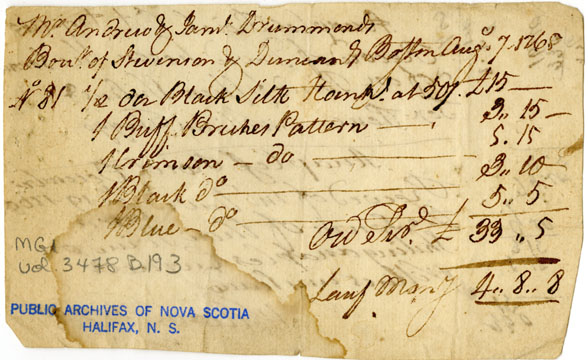 Mr. Andrew & Jams. Drummonds
Bout. of Stevenson & Duncan Boston Augt. 7. 1768
No. 81 1/2 doz Black Silk Hankfs. at 30/. £15 —
1 Buff Breeches Pattern — 3.. 15
1 Crimson — do — 5. 15
1 Black do — 3.. 10
1 Blue — do 5.. 5
Old £ 33.. 5
Lauf Mony 4.. 8.. 8
MG1
vol. 3478 B.193
PUBLIC ARCHIVES OF NOVA SCOTIA
HALIFAX, N. S.